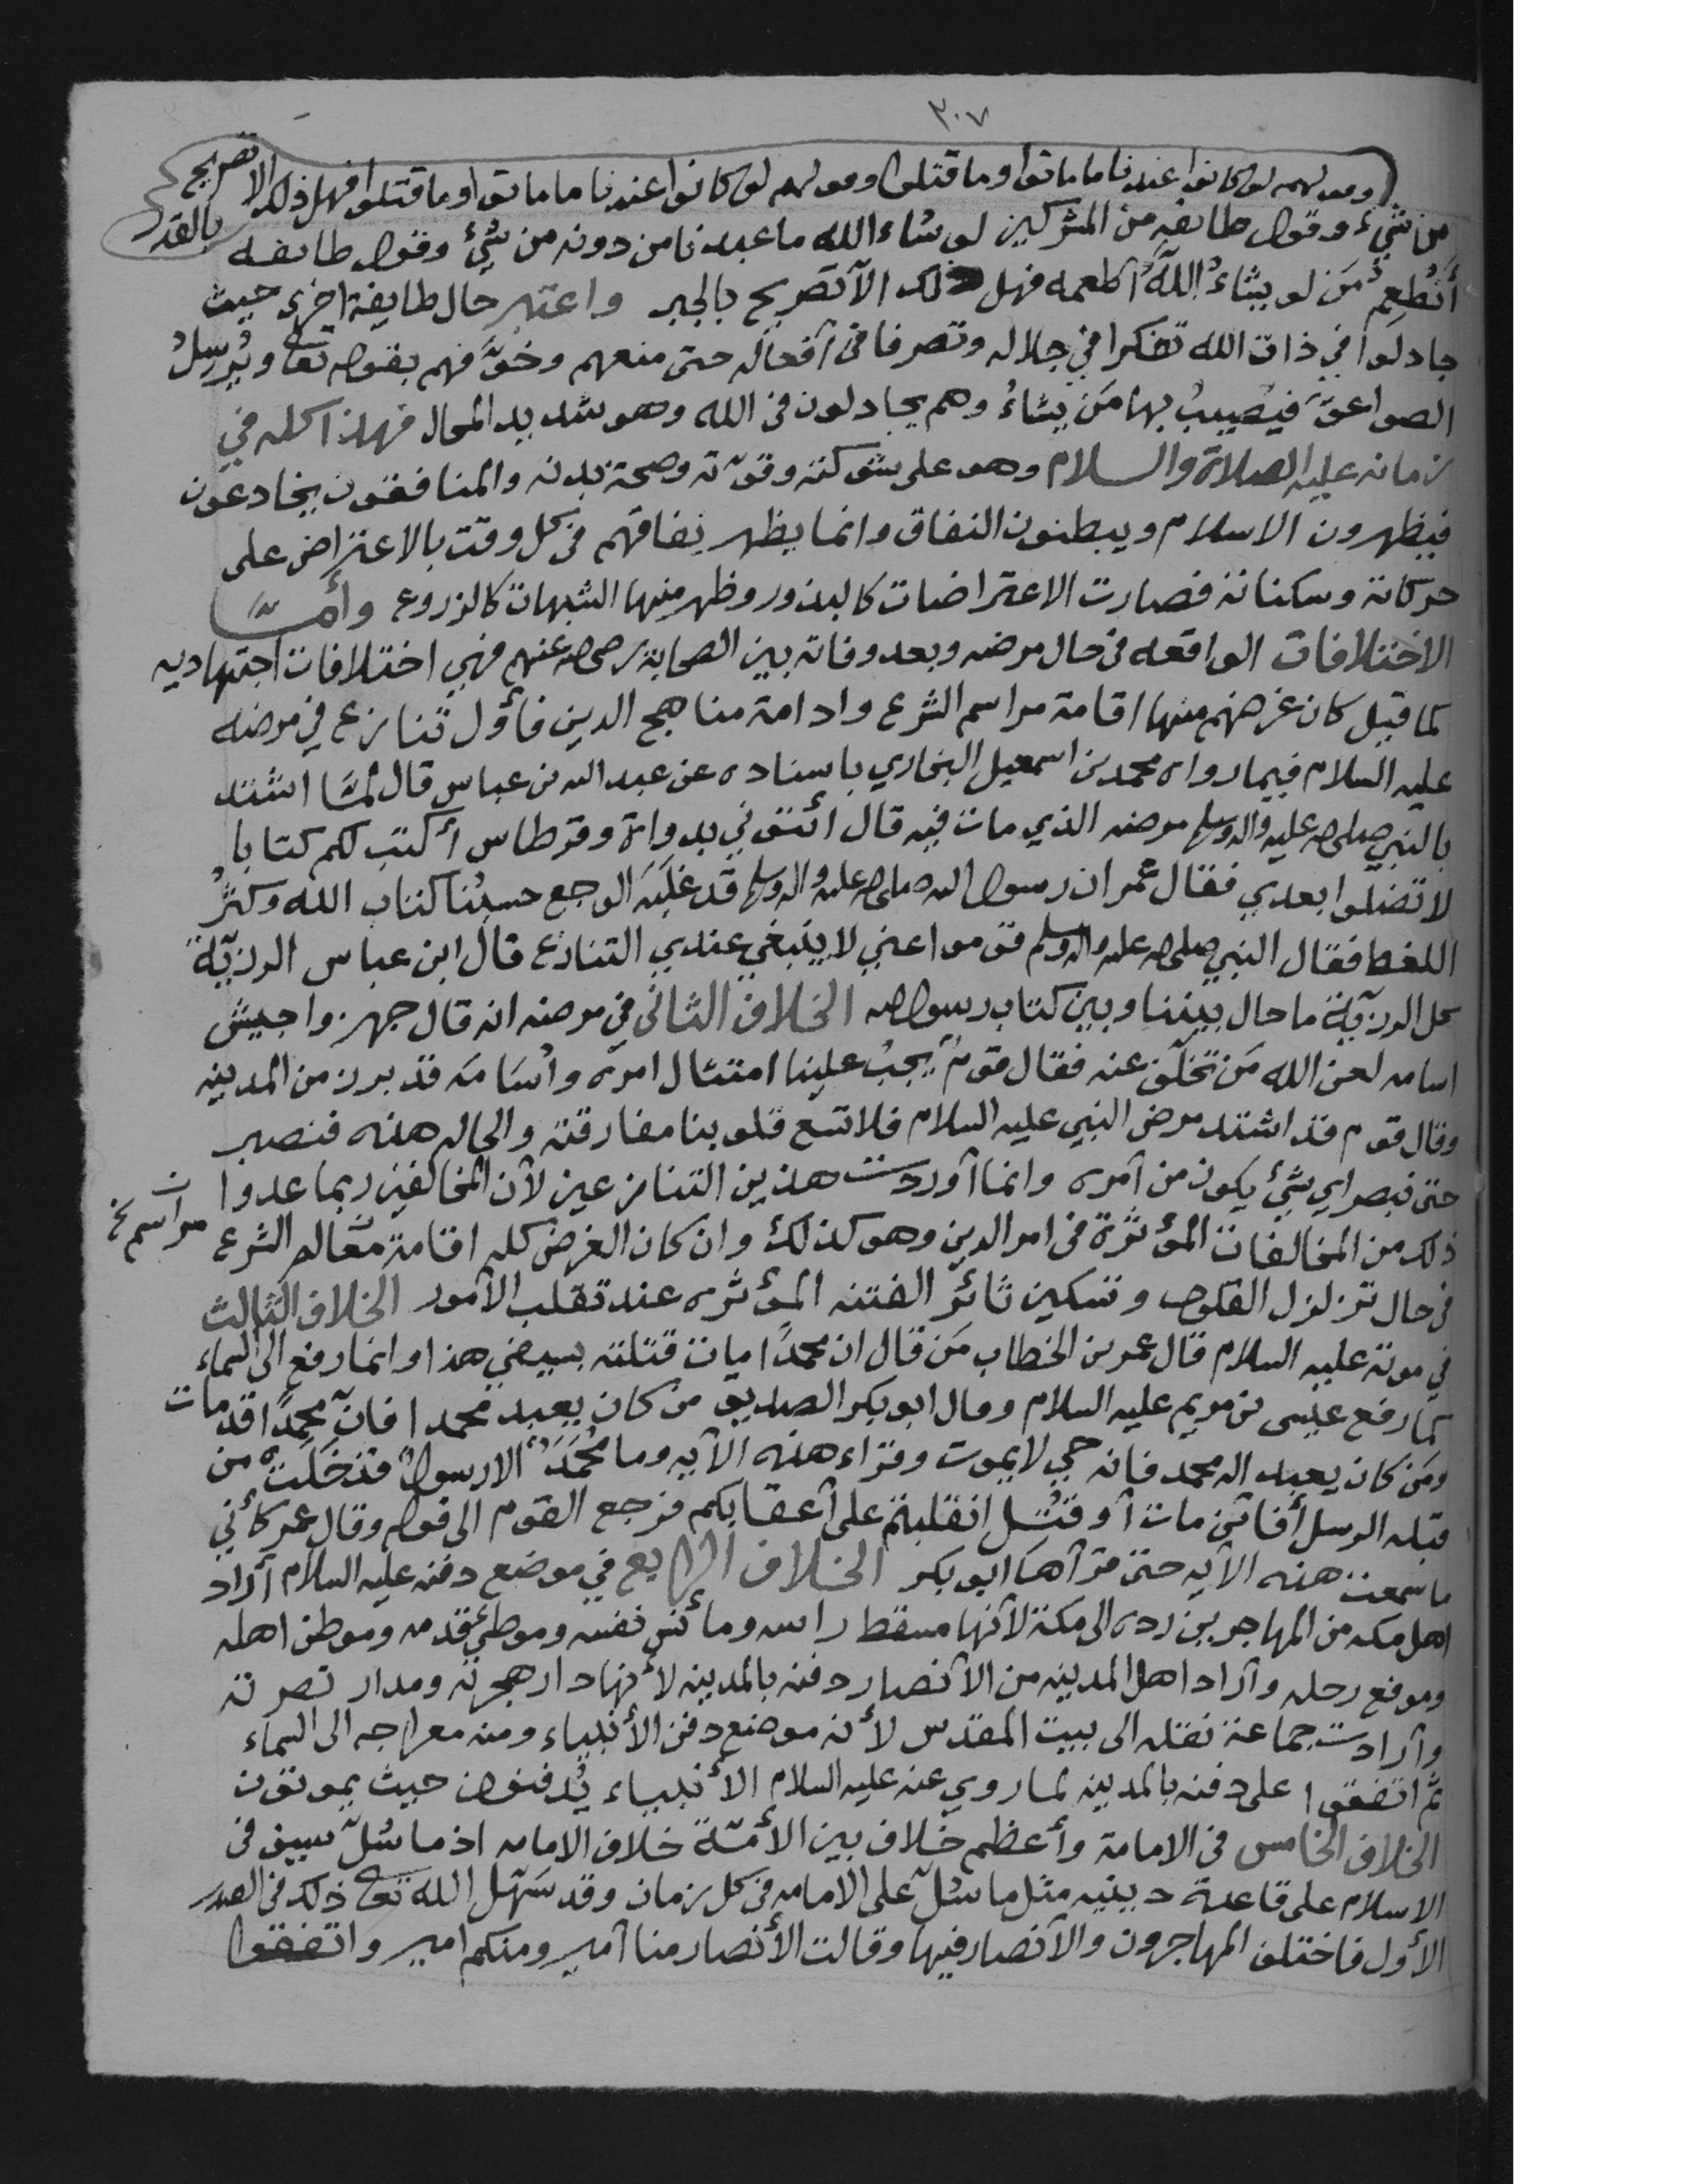 ٣٠٧
وقولهم لو كانوا عندنا ما ماتوا وما قتلوا وقولهم لو كانوا عندنا ما ماتوا وما قتلوا فهل ذلك الا تصريح بالقدر
من شيء وقول طايفه من المشركين لو شاء الله ما عبدنا من دونه من شيء وقول طايفه
أنُطعِمُ مَن لو يشاءُ اللهُ اطعمه فهل ذلك الا تصريح بالجبر واعتبر حال طايفة اخرى حيث
جادلوا في ذات الله تفكرا في جلاله وتصرفا في أفعاله حتى منعهم وخوَّفهم بقوله تعالى ويُرسِلُ
الصواعقَ فيُصيبُ بها مَن يشاءُ وهم يجادلون في الله وهو شديد المحال فهذا كله في
زمانه عليه الصلاة والسلام وهو على شوكته وقوّته وصحة بدنه والمنافقون يخادعون
فيظهرون الاسلام ويبطنون النفاق وانما يظهر نفاقهم في كل وقت بالاعتراض على
حركاته وسكناته فصارت الاعتراضات كالبذور وظهر منها الشبهات كالزروع وأمّا
الاختلافات الواقعه في حال مرضه وبعد وفاته بين الصحابة رضي الله عنهم فهي اختلافات اجتهاديه
كما قيل كان غرضهم منها اقامة مراسم الشرع وادامة مناهج الدين فأول تنازع في مرضه
عليه السلام فيما رواه محمد بن اسمعيل البخاري باسناده عن عبد الله بن عباس قال لمّا اشتد
بالنبي صلى الله عليه واله وسلم مرضه الذي مات فيه قال ائتوني بدواة وقرطاس أكتب لكم كتابا
لا تضلوا بعدي فقال عمر ان رسول الله صلى الله عليه واله وسلم قد غلبَه الوجع حسبُنا كتاب الله وكثُر
اللغط فقال النبي صلى الله عليه واله وسلم قوموا عني لا ينبغي عندي التنازع قال ابن عباس الرزيّة
كل الرزيّة ما حال بيننا وبين كتاب رسول الله الخلاف الثاني في مرضه انه قال جهزوا جيش
اسامه لعن الله مَن تخلّف عنه فقال قومٌ يجبُ علينا امتثال امره وأسَامَه قد برز من المدينه
وقال قوم قد اشتد مرض النبي عليه السلام فلا تسع قلوبنا مفارقته والحاله هذه فنصبر
حتى نبصر اي شيء يكون من أمره وانما أوردت هذين التنازعين لأن المخالفين ربما عدوا
ذلك من المخالفات المؤثرة في امر الدين وهو كذلك وان كان الغرض كله اقامة معالم الشرع مراسم خ
في حال تزلزل القلوب وتسكين ثائر الفتنه المؤثره عند تقلب الأمور الخلاف الثالث
في موته عليه السلام قال عمر بن الخطاب مَن قال ان محمدًا مات قتلته بسيفي هذا وانما رفع الى السماء
كما رفع عيسى بن مريم عليه السلام وقال ابو بكر الصديق من كان يعبد محمدا فانّ محمدًا قد مات
ومَن كان يعبد اله محمد فانه حي لا يموت وقراء هذه الآيه وما مُحَمّدٌ الا رسولٌ قد خَلَتْ من
قبله الرسل أفائن مات أو قُتل انقلبتم على أعقابكم فرجع القوم الى قوله وقال عمر كأني
ما سمعت هذه الآيه حتى قرأها ابو بكر الخلاف الرابع في موضع دفنه عليه السلام أراد
اهل مكه من المهاجرين رده الى مكة لأنها مسقط راسه ومأنس نفسه وموطئ قدمه وموطن اهله
وموقع رحله وأراد اهل المدينه من الأنصار دفنه بالمدينه لأنها دار هجرته ومدار نصرته
وأرادت جماعة نقله الى بيت المقدس لأنه موضع دفن الأنبياء ومنه معراجه الى السماء
ثم اتفقوا على دفنه بالمدينه لما روي عنه عليه السلام الأنبياء يُدفنون حيث يموتون
الخلاف الخامس في الامامة وأعظم خلاف بين الأمّة خلاف الامامه اذ ما سُلّ سيف في
الاسلام على قاعدة دينيه مثل ما سُلّ على الامامه في كل زمان وقد سَهّل الله تعالى ذلك في الصدر
الأول فاختلف المهاجرون والأنصار فيها وقالت الأنصار منا أمير ومنكم امير واتفقوا